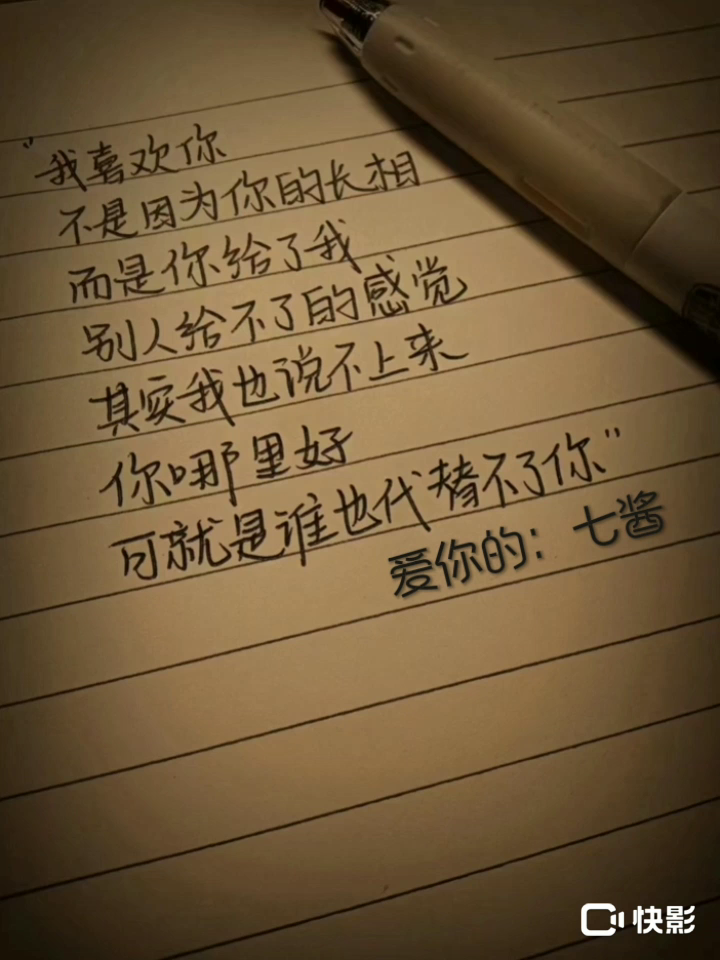 "我喜欢你
不是因为你的长相
而是你给了我
别人给不了的感觉
其实我也说不上来
你哪里好
可就是谁也代替不了你"
爱你的：七酱
快影